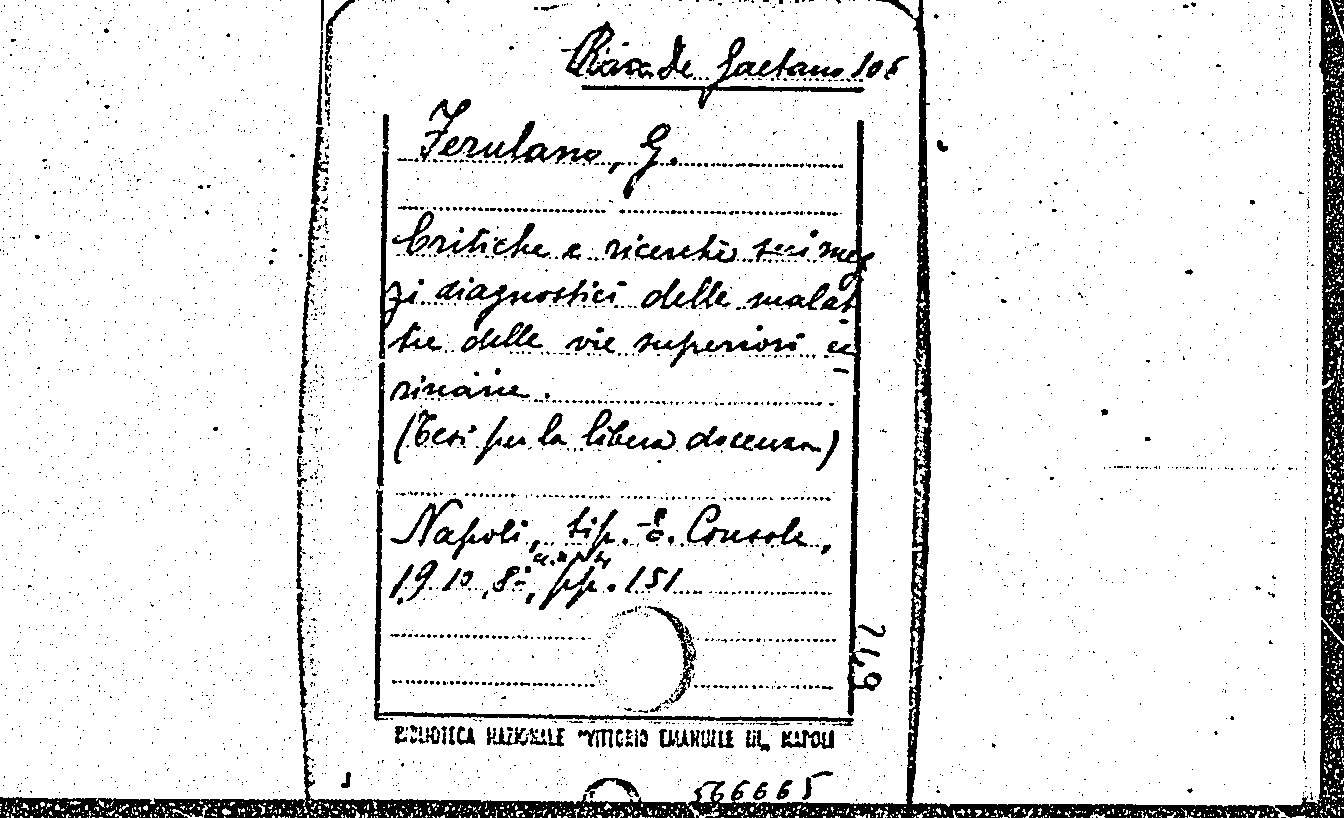 De Gaetano 105
Ferulano, G.
Critiche e ricerche sui mez
zi diagnostici delle malat
tie delle vie superiori u
rinarie.
(Tesi per la libera docenza)
Napoli, tip. E. Console,
1910, 8º, pp. 151
749
BIBLIOTECA NAZIONALE "VITTORIO EMANUELE III„ NAPOLI
566665